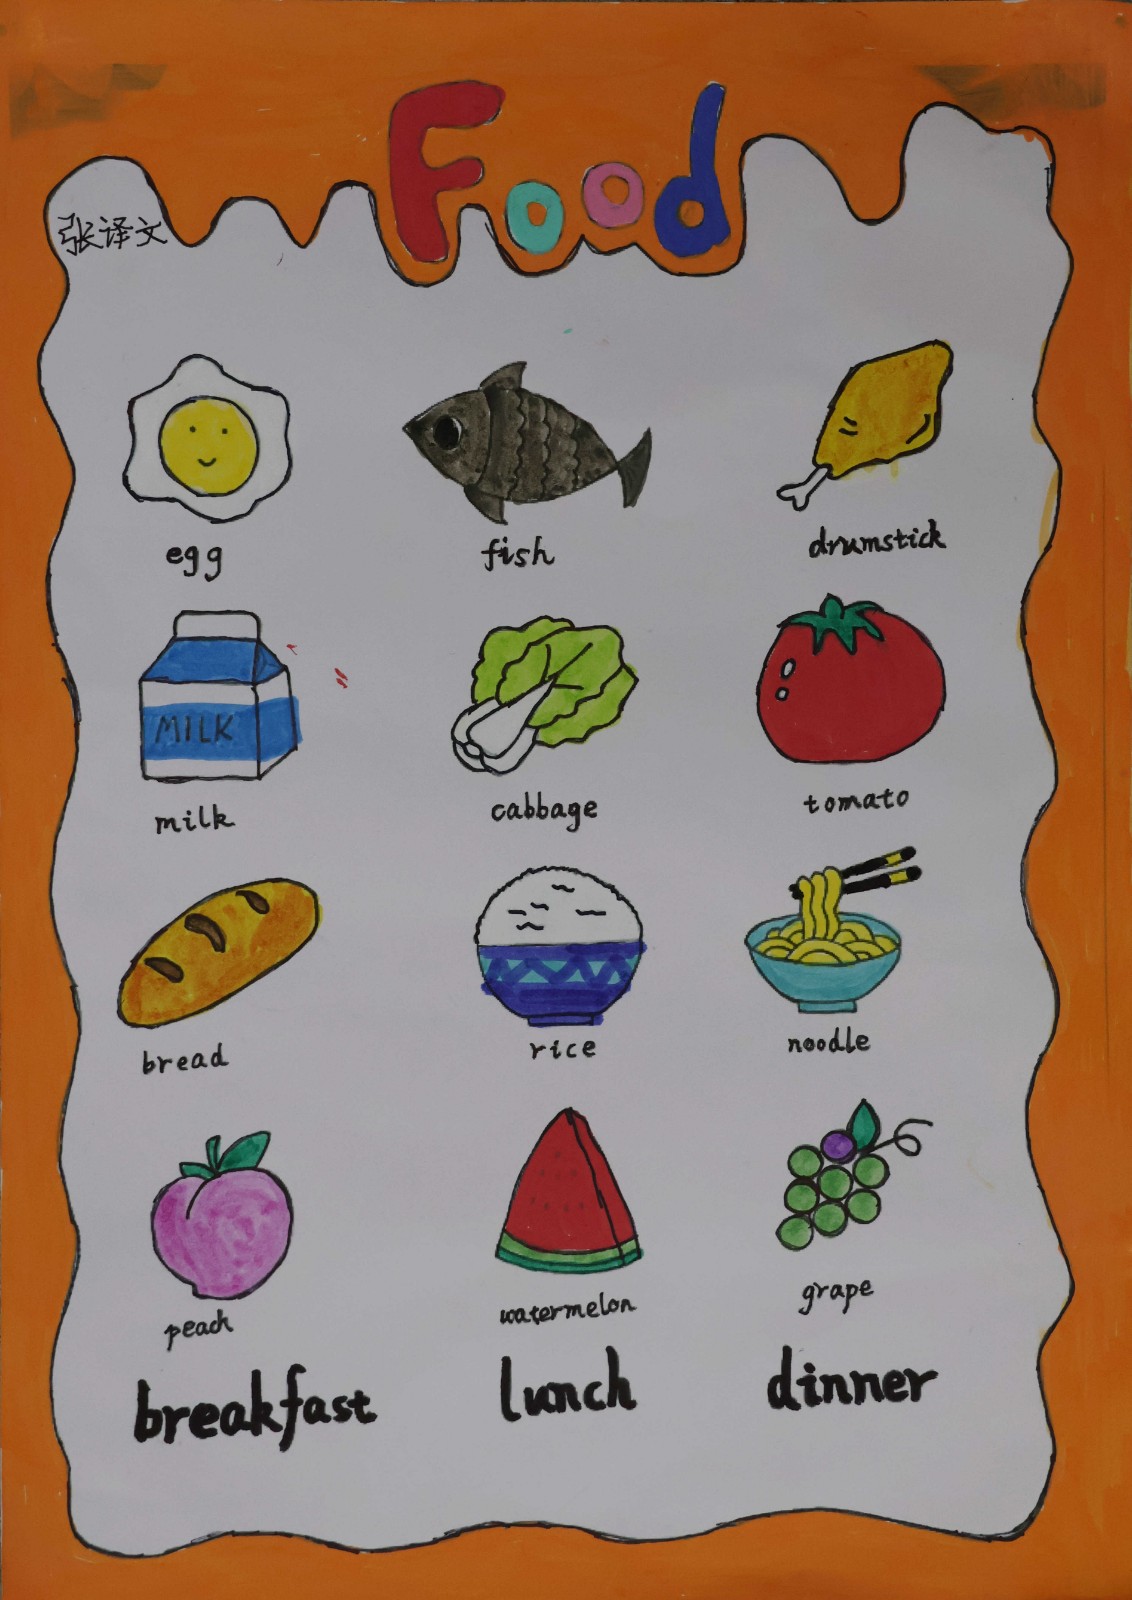 Food
张译文
egg
fish
drumstick
MILK
milk
cabbage
tomato
bread
rice
noodle
peach
watermelon
grape
breakfast
lunch
dinner